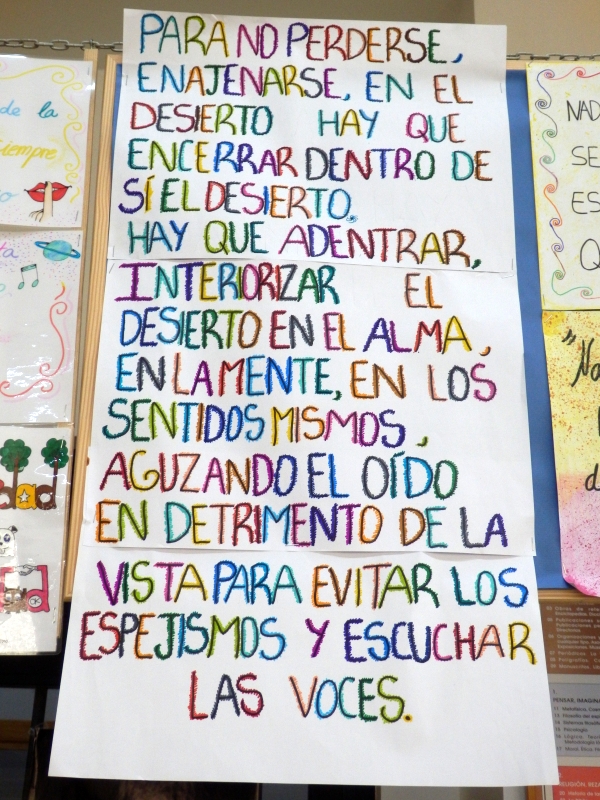 PARA NO PERDERSE,
ENAJENARSE, EN EL
DESIERTO HAY QUE
ENCERRAR DENTRO DE
SÍ EL DESIERTO.
HAY QUE ADENTRAR,
INTERIORIZAR EL
DESIERTO EN EL ALMA,
EN LA MENTE, EN LOS
SENTIDOS MISMOS,
AGUZANDO EL OÍDO
EN DETRIMENTO DE LA
VISTA PARA EVITAR LOS
ESPEJISMOS Y ESCUCHAR
LAS VOCES.
de la
siempre
NAD
SE
ES
Q